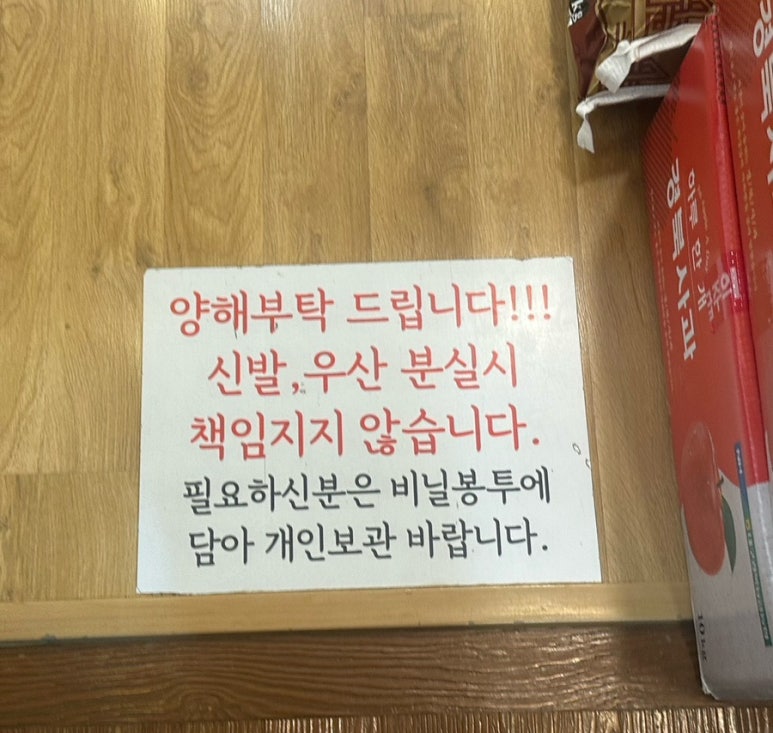 양해부탁 드립니다!!!
신발,우산 분실시
책임지지 않습니다.
필요하신분은 비닐봉투에
담아 개인보관 바랍니다.
하루 한 개
경북사과
경북사
10kg